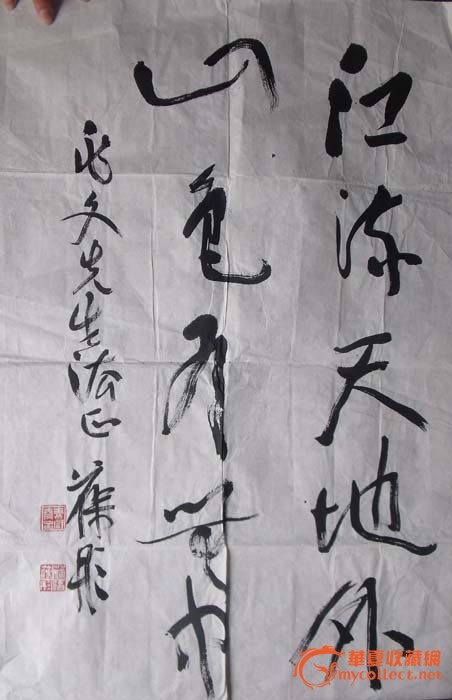 江流天地外
山色有無中
文先生法正
華夏收藏網
mycollect.net